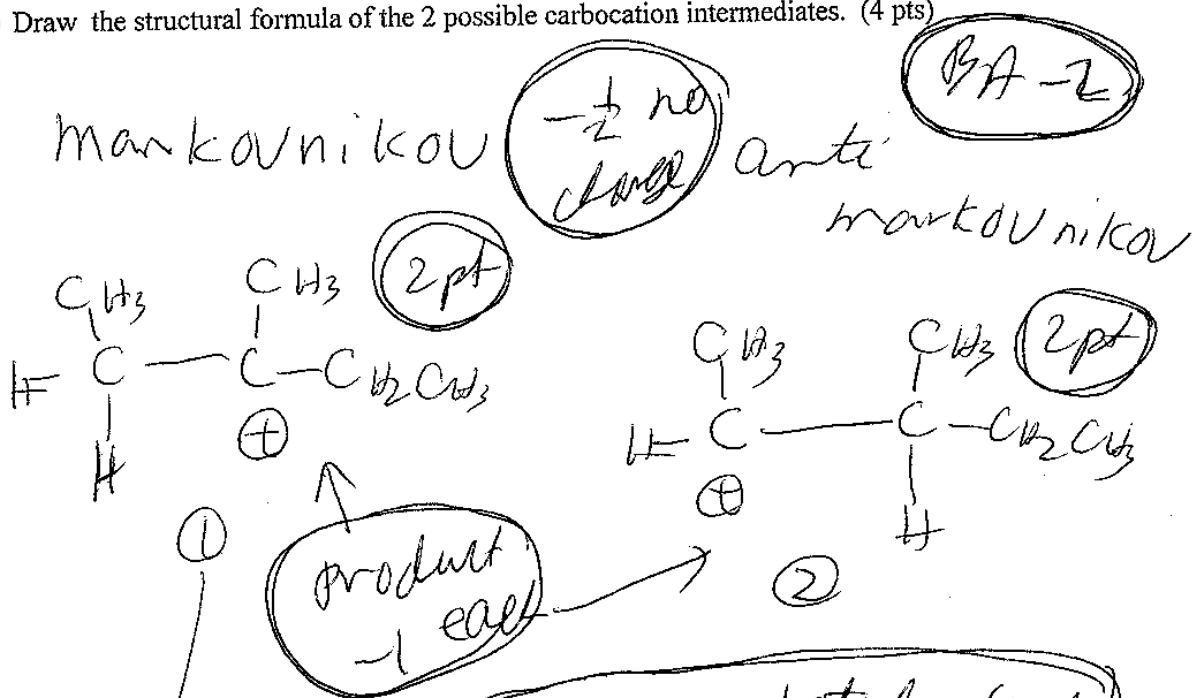 Draw the structural formula of the 2 possible carbocation intermediates. (4 pts)
BA-2
markovnikov
-½ no
charge
anti
markovnikov
CH3 CH3 2pt
H-C-C-CH2CH3
H ⊕
①
CH3 CH3 2pt
H-C-C-CH2CH3
⊕ H
②
product
-1 each